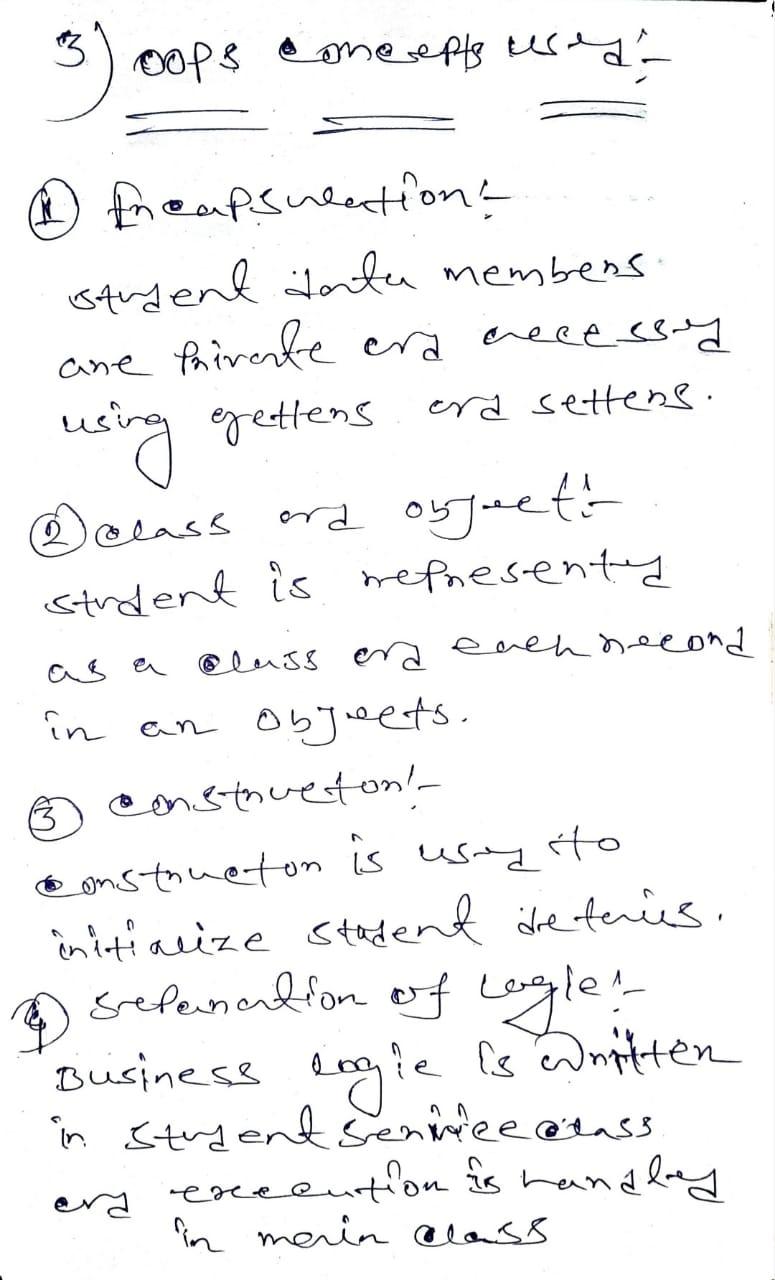 3) OOPS concepts used:-
① Encapsulation:-
student data members
are private and accessed
using getters and setters.
② class and object:-
student is represented
as a class and each record
in an objects.
③ constructor:-
constructor is used to
initialize student details.
④ seperation of logic:-
Business logic is written
in student service class
and execution is handled
in main class